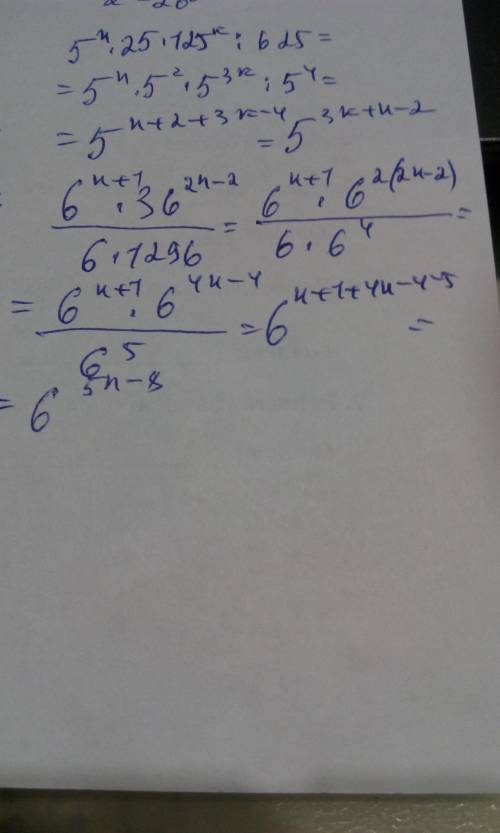 5^n · 25 · 125^k : 625 =
= 5^n · 5^2 · 5^{3k} : 5^4 =
= 5^{n+2+3k-4} = 5^{3k+n-2}
\frac{6^{n+1} · 36^{2n-2}}{6 · 1296} = \frac{6^{n+1} · 6^{2(2n-2)}}{6 · 6^4} =
= \frac{6^{n+1} · 6^{4n-4}}{6^5} = 6^{n+1+4n-4-5} =
= 6^{5n-8}